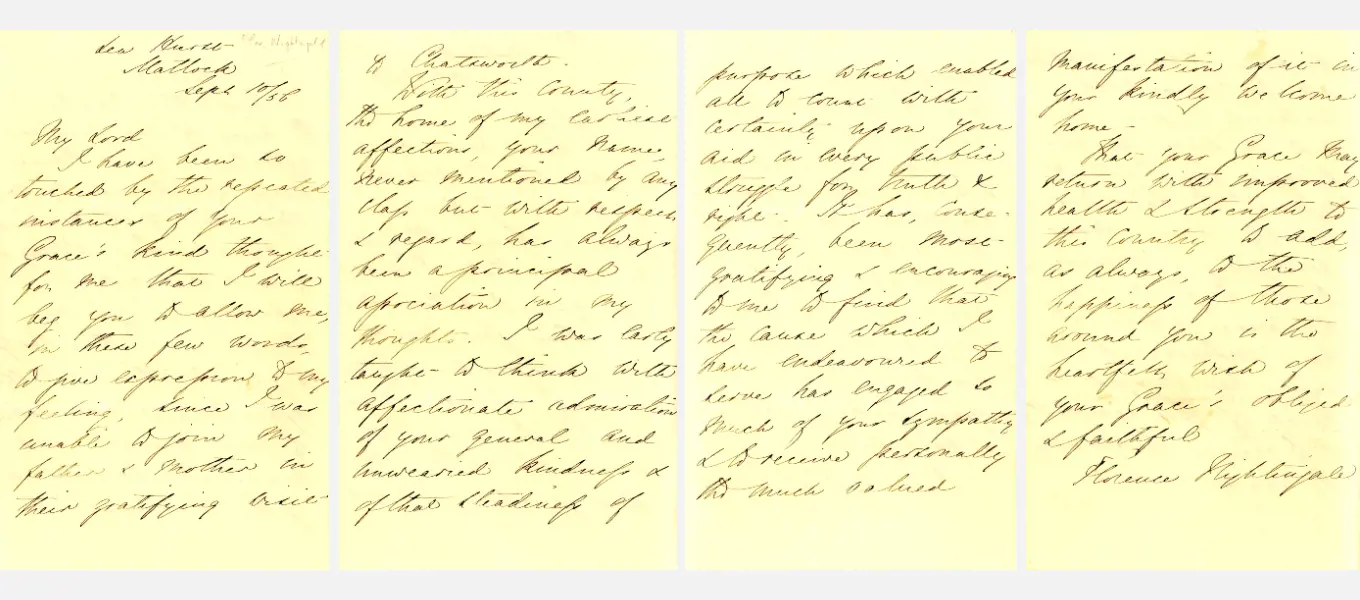 Lea Hurst
Matlock
Sept 10/56
My Lord
I have been so
touched by the repeated
instances of your
Grace's kind thought
for me that I will
beg you to allow me,
in these few words,
to give expression to my
feeling, since I was
unable to join my
father & mother in
their gratifying visit
to Chatsworth.
With this County,
the home of my earliest
affections, your name,
never mentioned by any
class but with respect
& regard, has always
been a principal
association in my
thoughts. I was early
taught to think with
affectionate admiration
of your general and
unwearied kindness &
of that steadiness of
purpose which enabled
all to count with
certainty upon your
aid in every public
struggle for truth &
right. It has, conse-
quently, been most
gratifying & encouraging
to me to find that
the cause which I
have endeavoured to
serve has engaged so
much of your sympathy
& to receive personally
the much valued
manifestation of it in
your kindly welcome
home.
That your Grace may
return with improved
health & strength to
this country to add,
as always, to the
happiness of those
around you is the
heartfelt wish of
your Grace's obliged
& faithful
Florence Nightingale